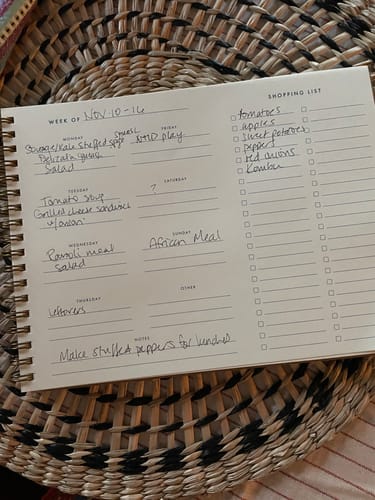 WEEK OF Nov 10-16
MONDAY
Sausage/Kale stuffed
squash
Delicata
Salad
FRIDAY
play
TUESDAY
Tomato soup
Grilled cheese sandwich
SATURDAY
?
WEDNESDAY
Ravioli meal
salad
SUNDAY
African Meal
THURSDAY
leftovers
OTHER
NOTES
Make stuffed peppers for lunches
SHOPPING LIST
tomatoes
apples
sweet potatoes
peppers
red onions
Kombu